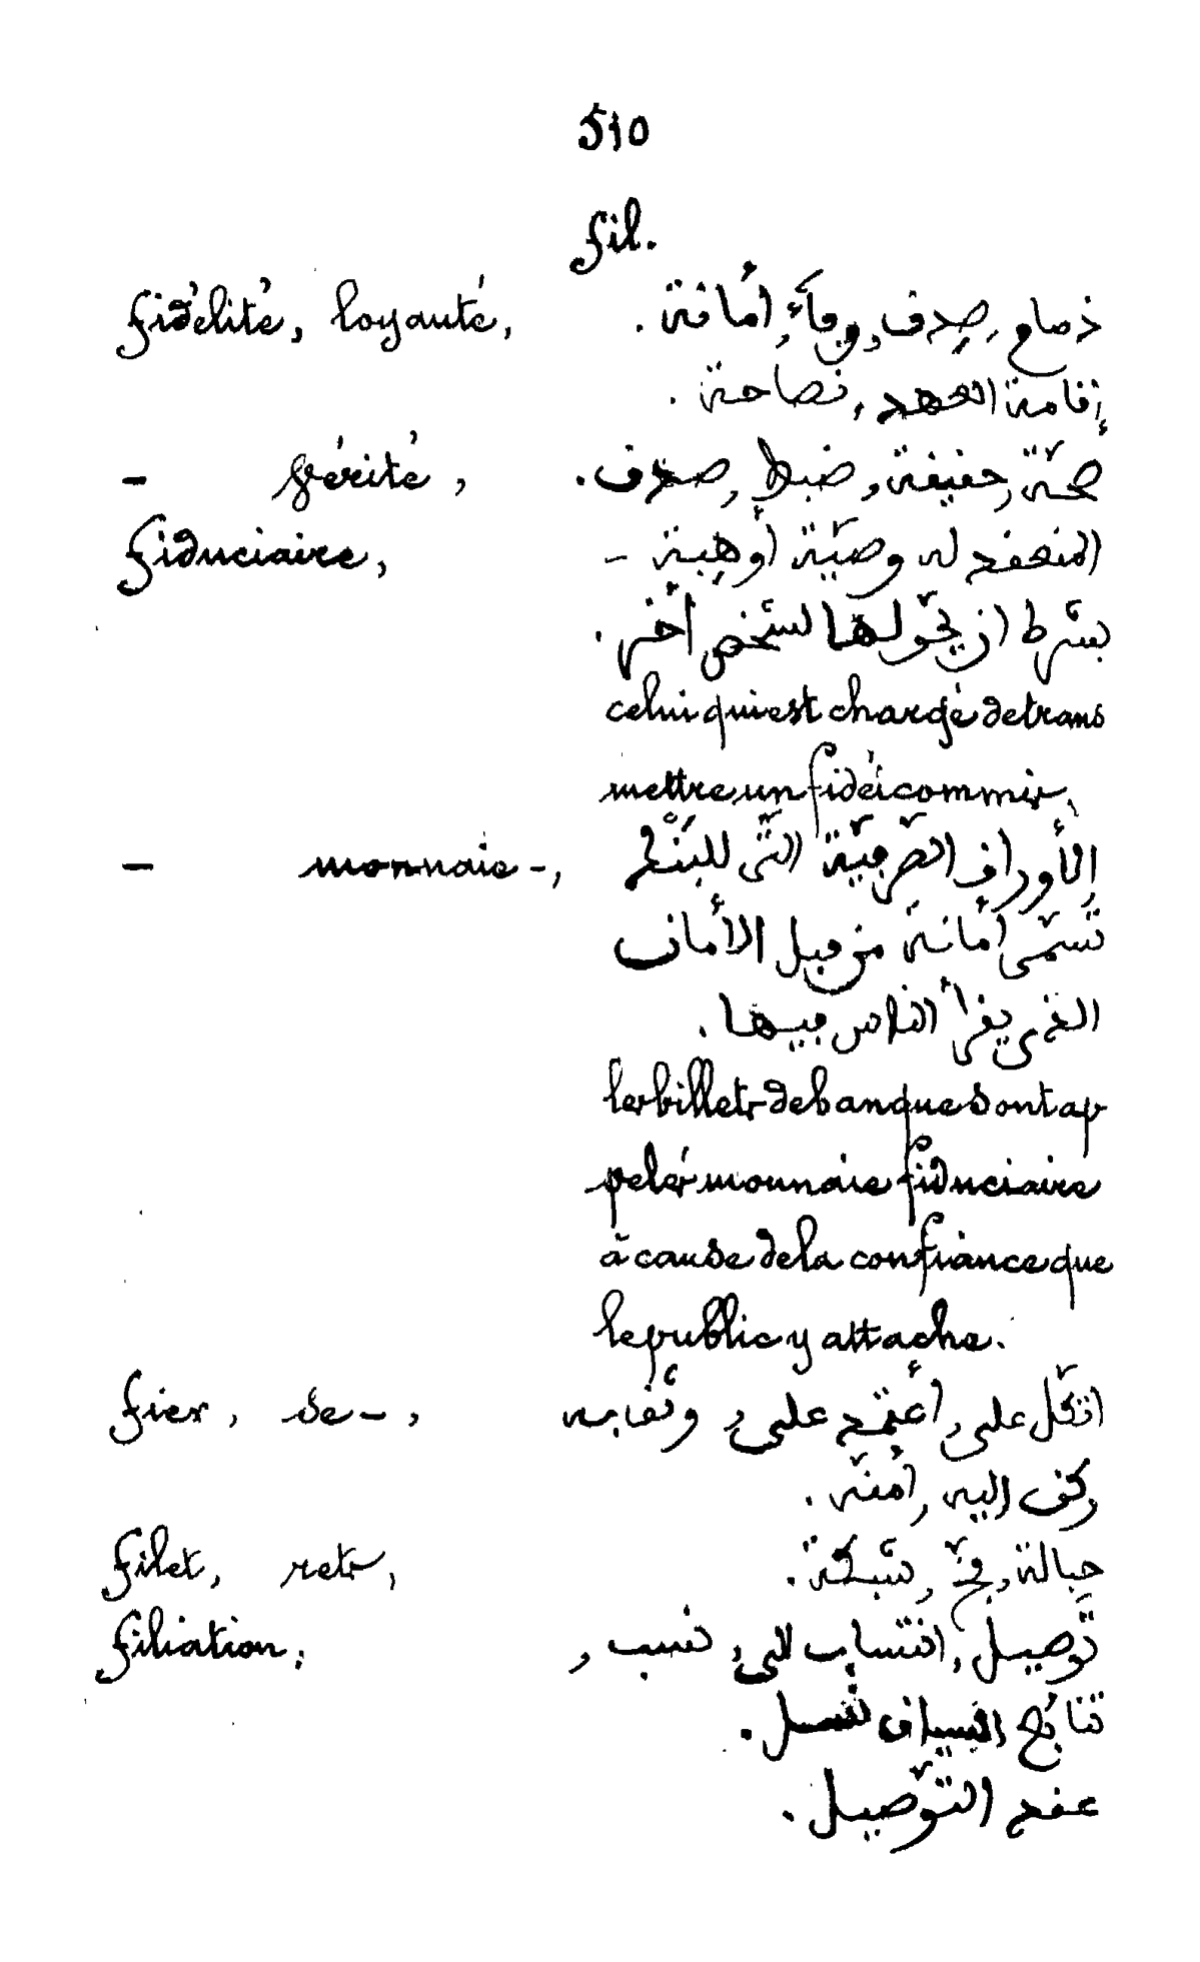 510
fil.
fidélité, loyauté, ذمام, صدق, وفاء, أمانة.
إقامة العهد, نصاحة.
– vérité, صحّة, حقيقة, ضبط, صدق.
fiduciaire, المنعقد له وصيّة أو هبة –
بشرط ان يحّولها لشخص أخر.
celui qui est chargé de trans
mettre un fidéicommis.
– monnaie –, الأوراق الصّرفيّة التّي للبَنْك
تسمّى أمانة من قبل الأمان
الذي يقرأ الناس فيها.
les billets de banque sont ap
pelés monnaie fiduciaire
à cause de la confiance que
le public y attache.
fier, se –, اتكّل على, أعتمد على, وثق به
ركن اليه, أمنه.
filet, rets, حبالة, فخّ, شبكة.
filiation, توصيل, انتساب الى, نسب,
نتائج نسل.
عقد التّوصيل.